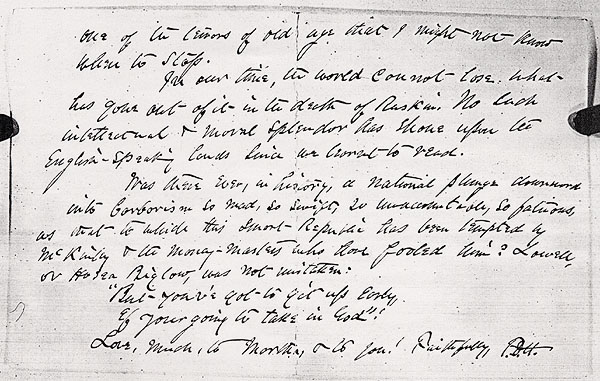 one of the terrors of old age that I might not know
when to stop.
In our time, the world cannot lose what
has gone out of it in the death of Ruskin. No such
intellectual & moral splendor has shone upon the
English-speaking lands since we learnt to read.
Was there ever, in history, a national plunge downward
into barbarism so mad, so swift, so unaccountable, so fatuous,
as that to which this Great Republic has been tempted by
McKinley & the money-masters who have fooled him? Lowell,
or Hosea Biglow, was not mistaken:
"But you've got to git up early,
Ef your going to take in God"!
Love, much, to Martha, & to you! Faithfully,